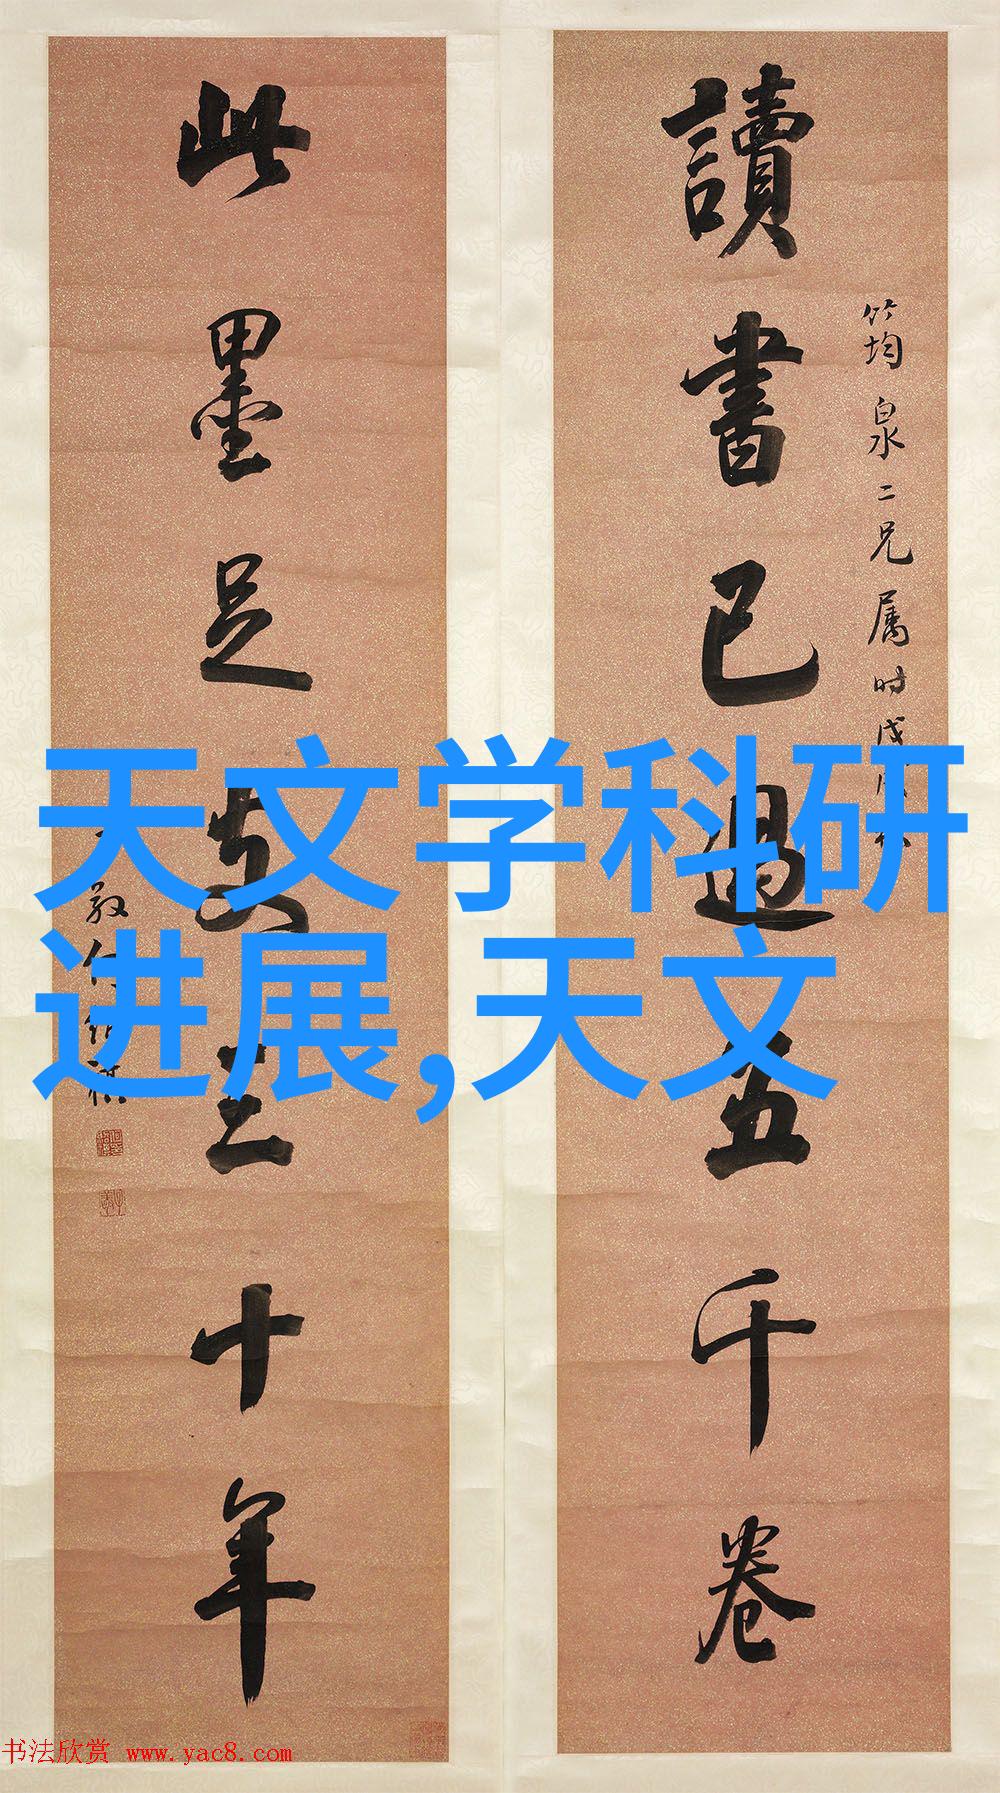 讀書已過五千卷
筠泉二兄属时戊
此墨足支三十年
天文学科研
进展,天文
书法欣赏 www.yac8.com